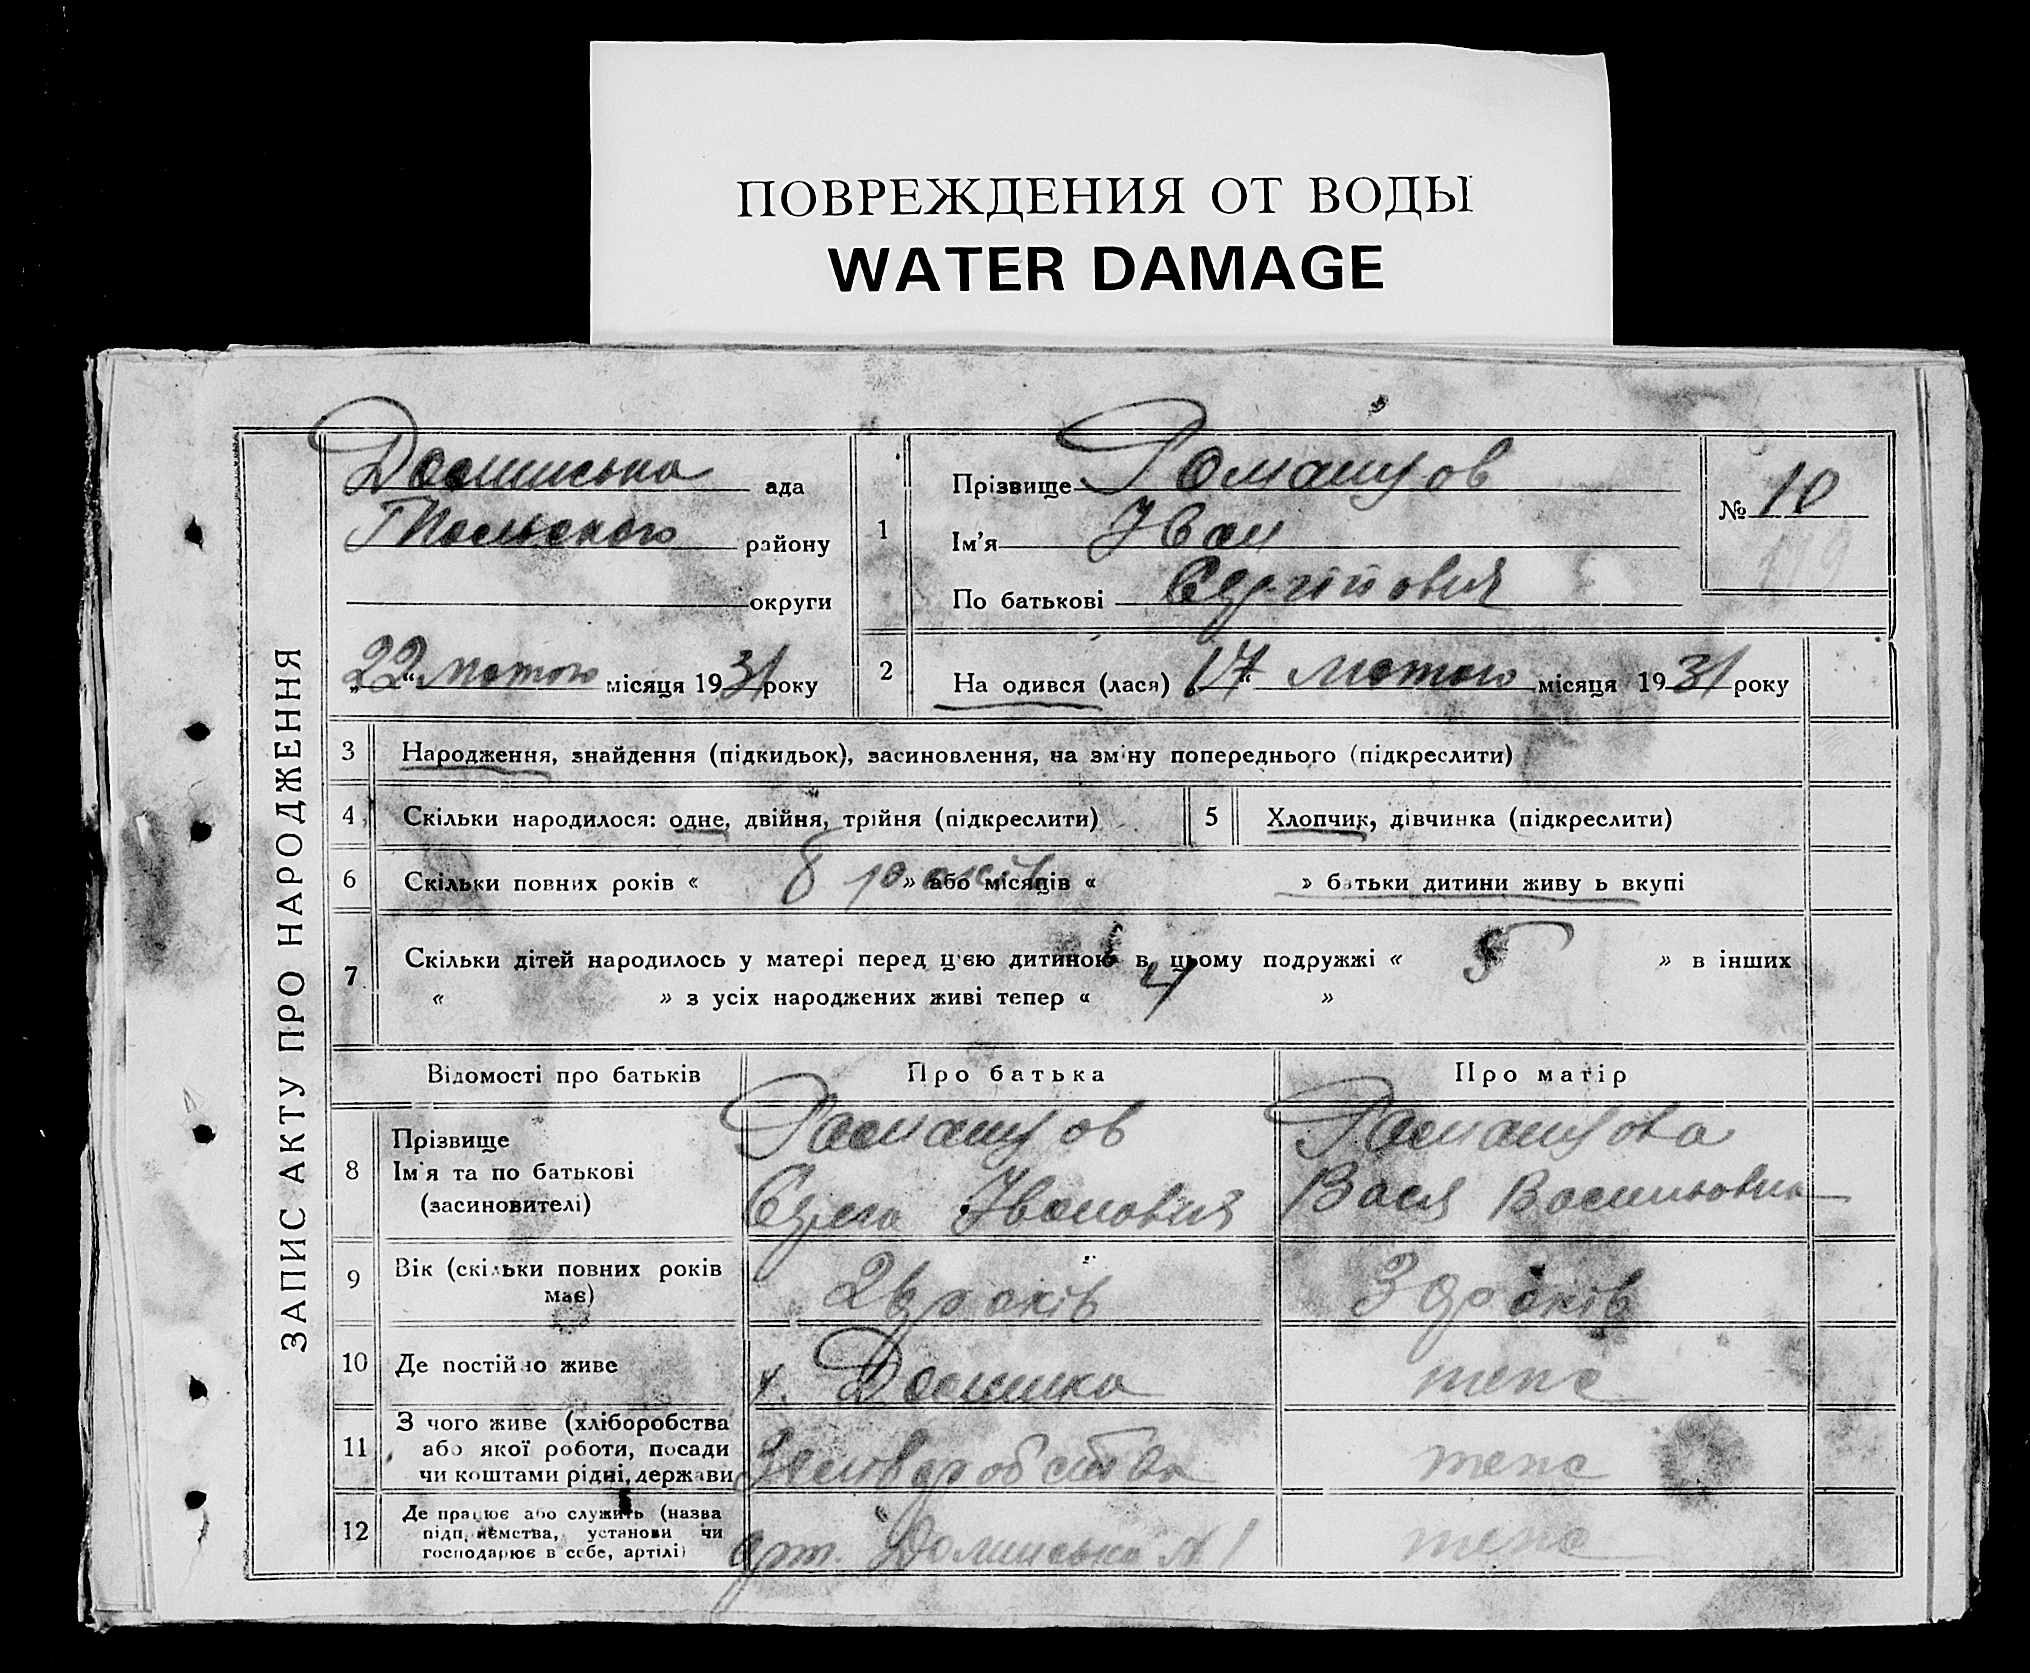 ПОВРЕЖДЕНИЯ ОТ ВОДЫ
WATER DAMAGE
ЗАПИС АКТУ ПРО НАРОДЖЕННЯ
Долинська ада
району
округи
22 лютого місяця 1931 року
1
Прізвище Ромашов
Ім'я Іван
По батькові Сергійович
№ 10
119
2
На одився (лася) 17 лютого місяця 1931 року
3 Народження, знайдення (підкидьок), засиновлення, на зміну попереднього (підкреслити)
4 Скільки народилося: одне, двійня, трійня (підкреслити)
5 Хлопчик, дівчинка (підкреслити)
6 Скільки повних років « 8 років » або місяців « » батьки дитини живу ь вкупі
7 Скільки дітей народилось у матері перед цією дитиною в цьому подружжі « 5 » в інших
« » з усіх народжених живі тепер « 4 »
Відомості про батьків
Про батька
Про матір
8
Прізвище
Ім'я та по батькові
(засиновителі)
Ромашов
Іванович
Ромашова
Вася Василівна
9
Вік (скільки повних років
має)
років
років
10 Де постійно живе
х. Долинка
теж
11
З чого живе (хліборобства
або якої роботи, посади
чи коштами рідні, держави
теж
12
Де працює або служить (назва
підприємства, установи чи
господарює в себе, артілі)
арт. Долинська № 1
теж